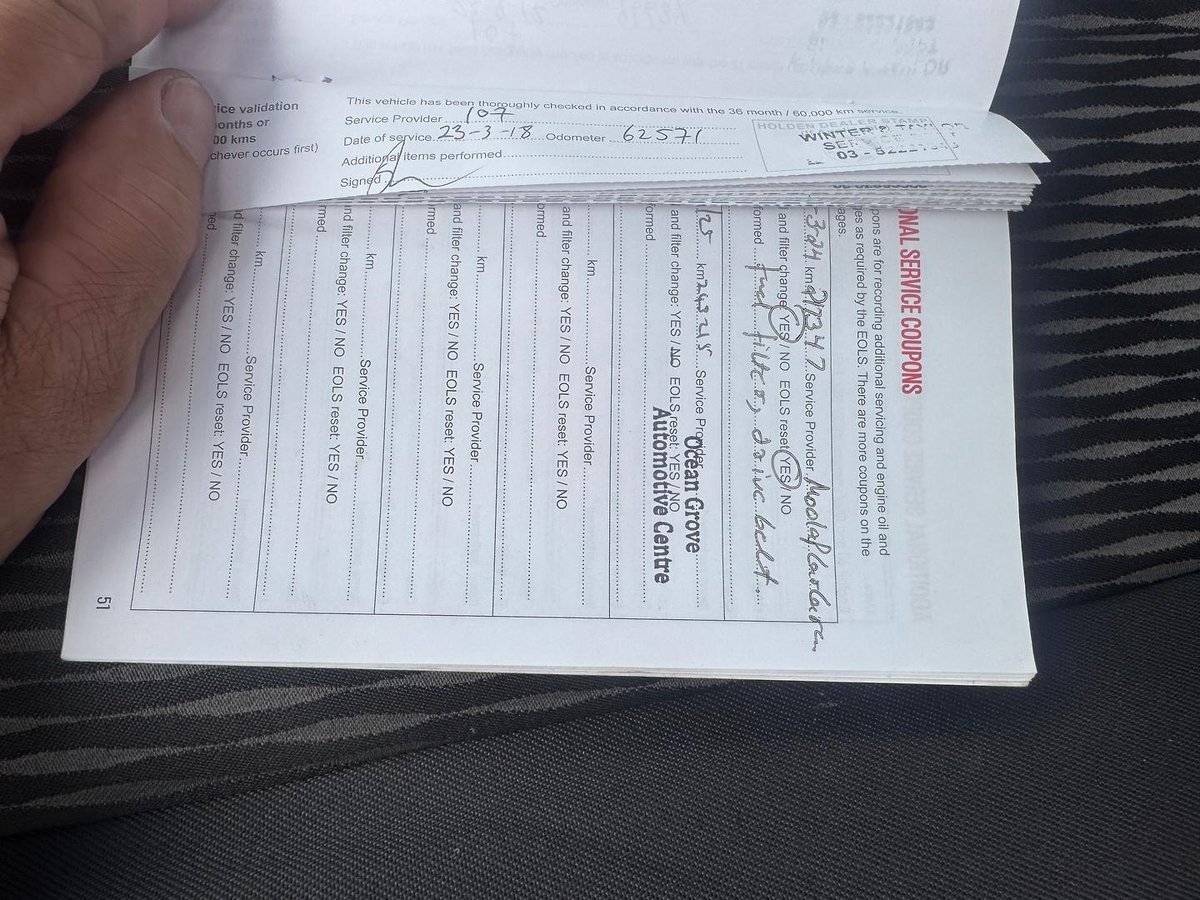 rice validation
onths or
00 kms
chever occurs first)
This vehicle has been thoroughly checked in accordance with the 36 month / 60,000 km service.
Service Provider 107
Date of service 23-3-18 Odometer 62571
Additional items performed
Signed
HOLDEN DEALER STAMP
WINTER &
03 -
ONAL SERVICE COUPONS
pons are for recording additional servicing and engine oil and
es as required by the EOLS. There are more coupons on the
ages.
-3-24 km 217347 Service Provider
and filter change: YES / NO EOLS reset: YES / NO
formed fuel filter, drive belt
/25 km Service Provider
and filter change: YES / NO EOLS reset: YES / NO
formed
Ocean Grove
Automotive Centre
km Service Provider
and filter change: YES / NO EOLS reset: YES / NO
ormed
km Service Provider
and filter change: YES / NO EOLS reset: YES / NO
rmed
km Service Provider
nd filter change: YES / NO EOLS reset: YES / NO
rmed
km Service Provider
d filter change: YES / NO EOLS reset: YES / NO
ned
51